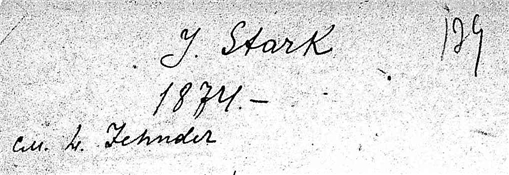 J. Stark 129
1874.—
см. L. Zehnder